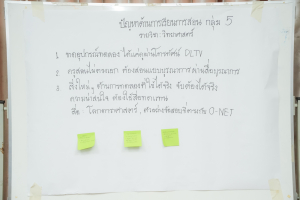 ปัญหาด้านการเรียนการสอน กลุ่ม 5
รายวิชา วิทยาศาสตร์
1. ขาดอุปกรณ์ทดลอง ได้แต่ดูผ่านโทรทัศน์ DLTV
2. ครูสอนไม่ตรงเอก ต้องสอนแบบบูรณาการ
3. สิ่งใหม่ๆ ด้านการทดลองที่ใช้ได้จริง จับต้องได้จริง
ความน่าสนใจ ต้องใช้สื่อทดแทน
คือ โครงการวิทยาศาสตร์, ตัวอย่างข้อสอบที่ตรงกับ O-NET